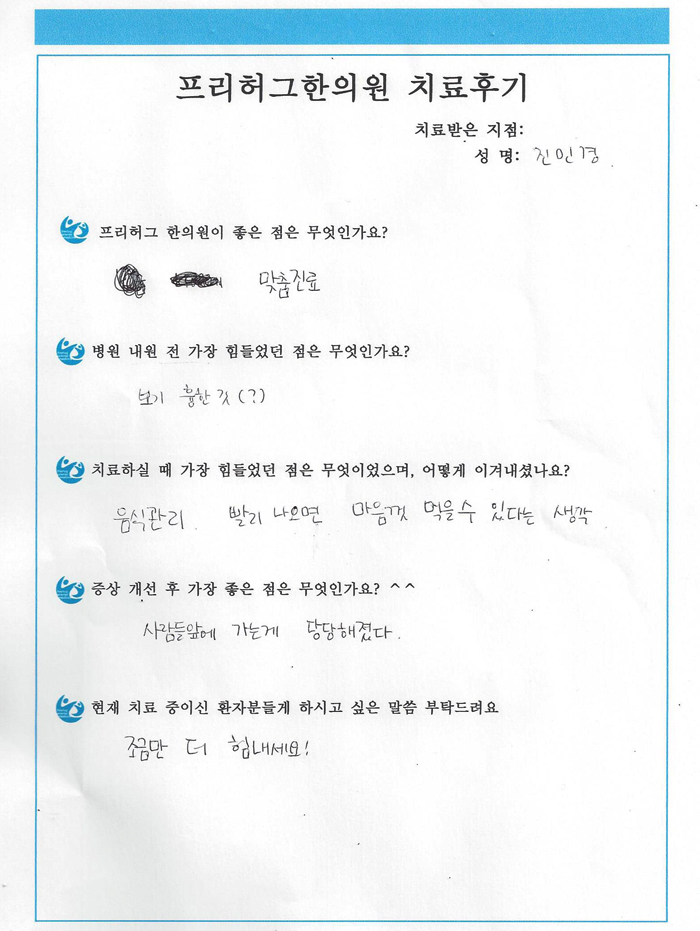 프리허그한의원 치료후기
치료받은 지점:
성 명: 진민경.
프리허그 한의원이 좋은 점은 무엇인가요?
맞춤진료
병원 내원 전 가장 힘들었던 점은 무엇인가요?
보기 흉한 것 (?)
치료하실 때 가장 힘들었던 점은 무엇이었으며, 어떻게 이겨내셨나요?
음식관리. 빨리 나으면 마음껏 먹을수 있다는 생각.
증상 개선 후 가장 좋은 점은 무엇인가요? ^^
사람들앞에 가는게 당당해졌다.
현재 치료 중이신 환자분들게 하시고 싶은 말씀 부탁드려요
조금만 더 힘내세요!